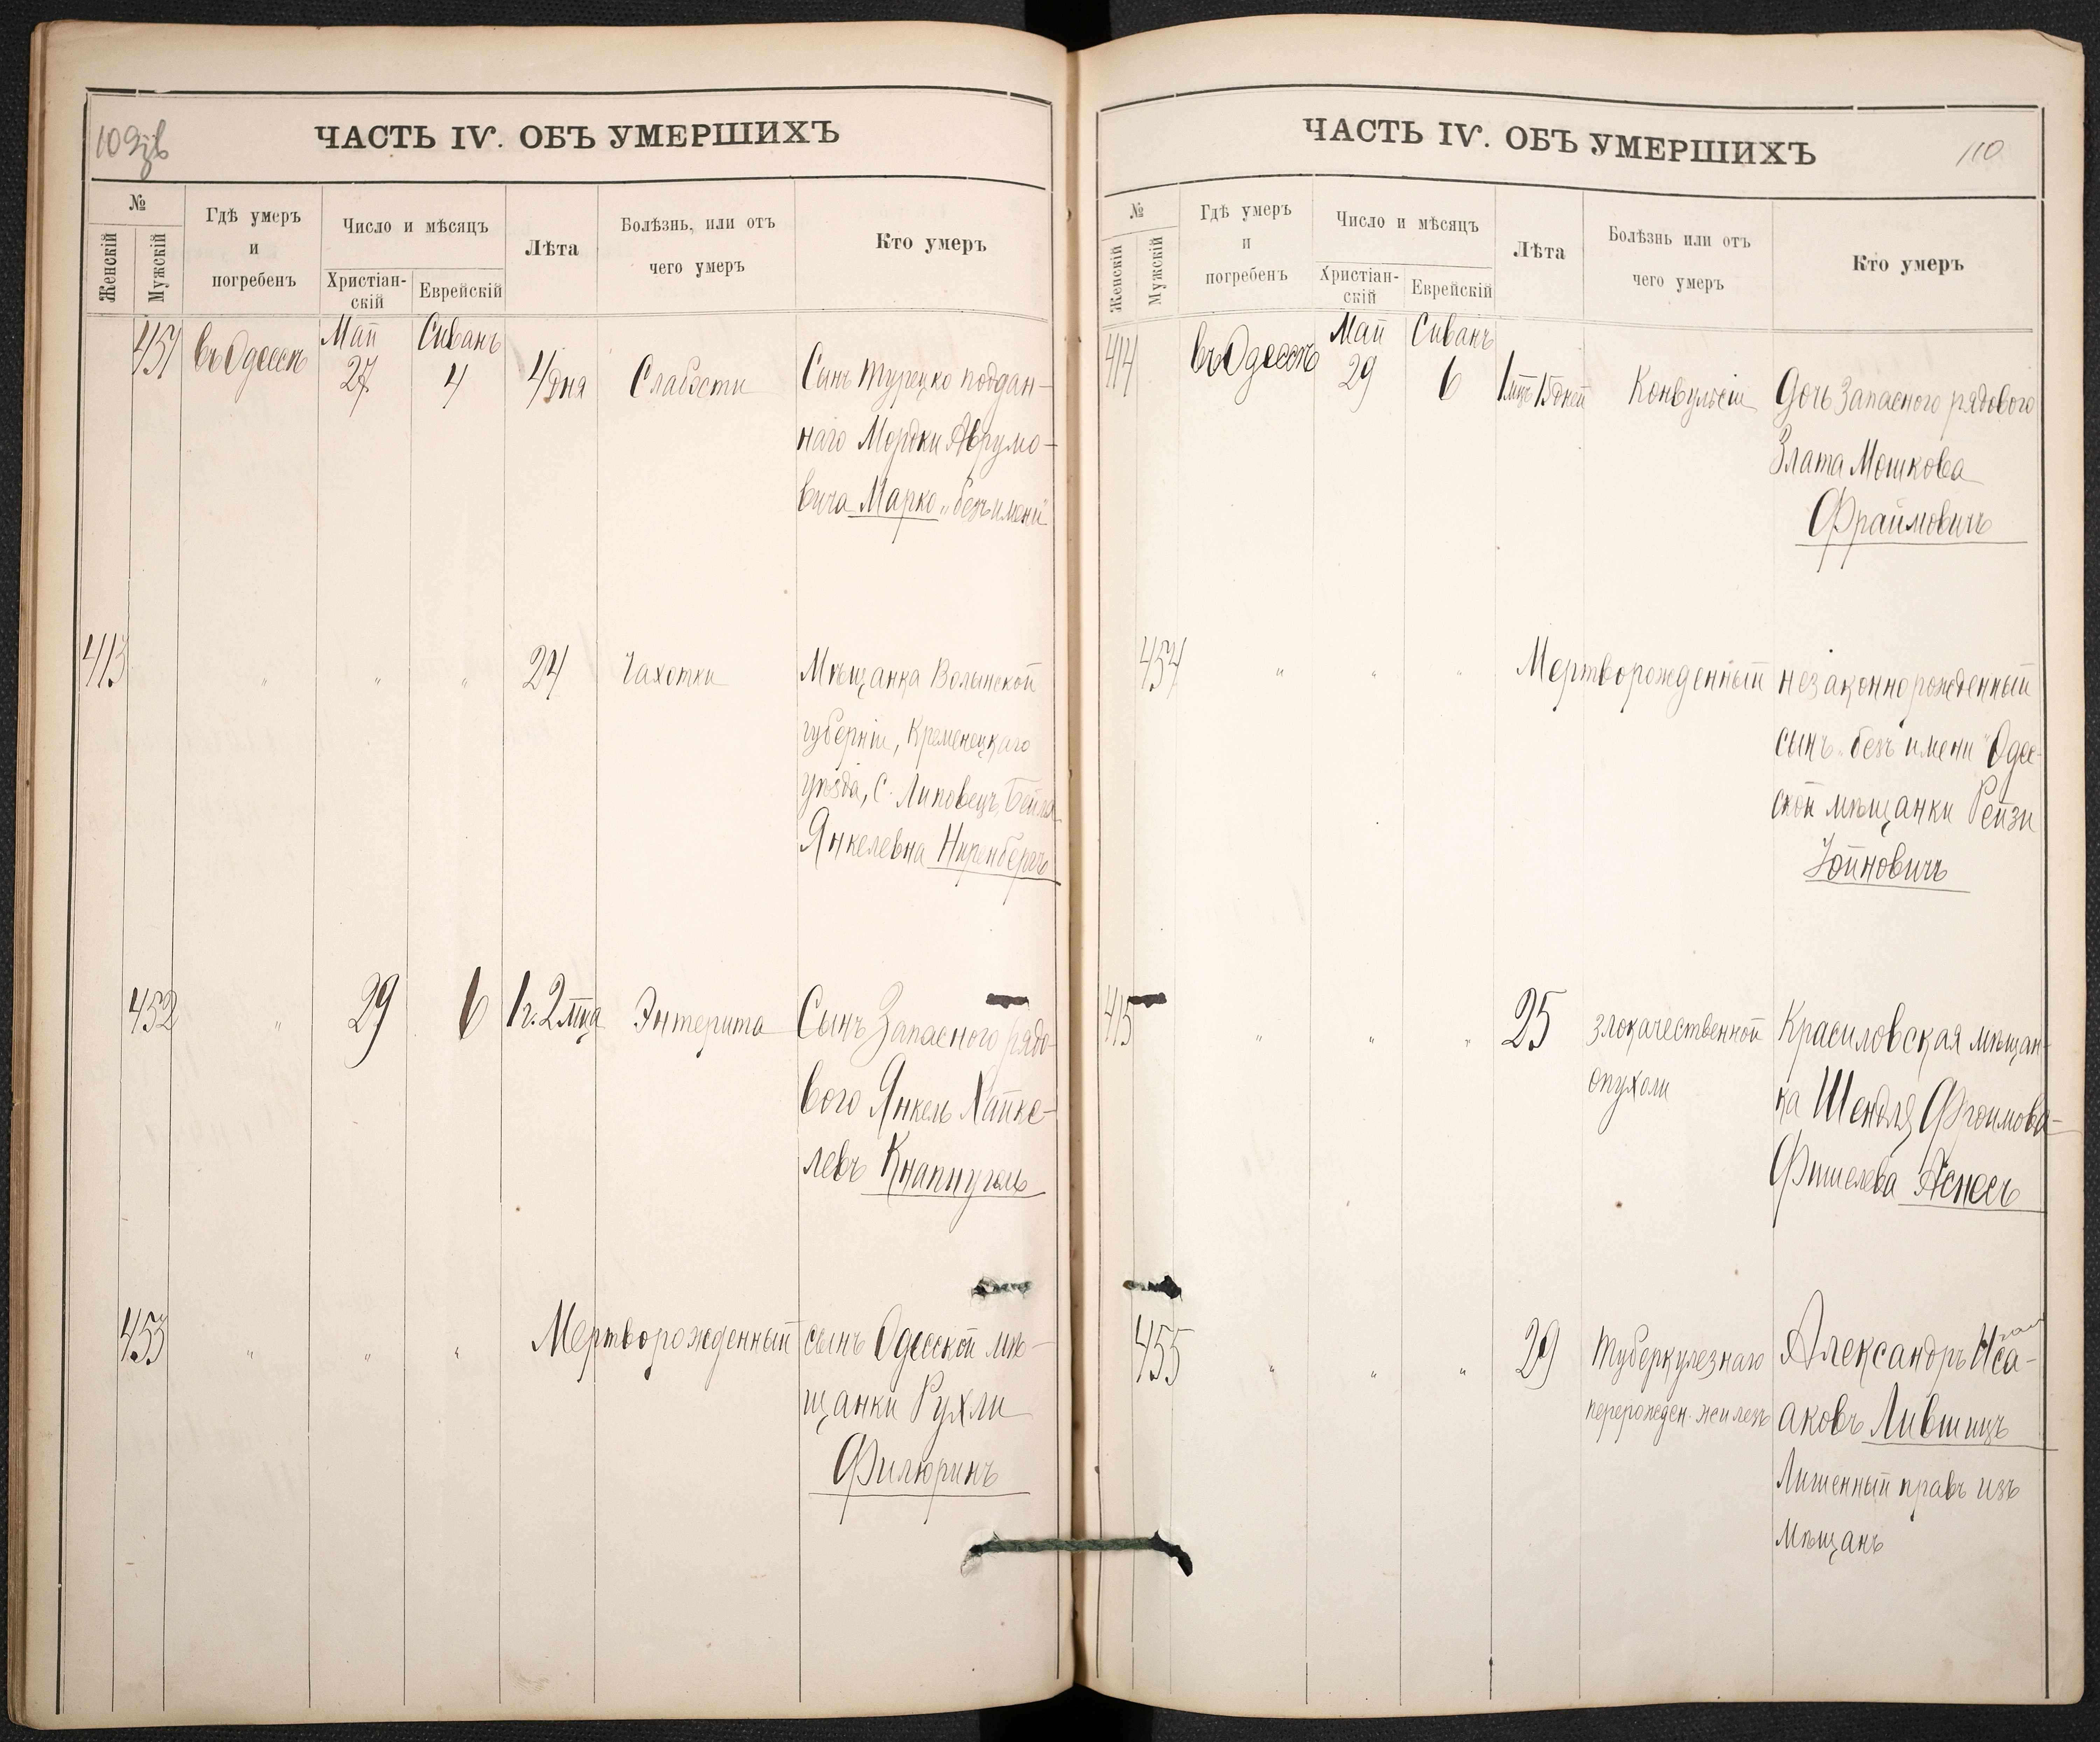 109зв
ЧАСТЬ IV. ОБЪ УМЕРШИХЪ
№
Женскій
Мужскій
Гдѣ умеръ
и
погребенъ
Число и мѣсяцъ
Христіан-
скій
Еврейскій
Лѣта
Болѣзнь, или отъ
чего умеръ
Кто умеръ
Май Сиванъ
451 въ Одессѣ 27 4 4 дня Слабости Сынъ турецко поддан-
наго Мордки Аврумо-
вича Марко „безъ имени"
413 " " " 24 Чахотки Мѣщанка Волынской
губерніи, Кременецкаго
уѣзда, с. Липовецъ, Бейла
Янкелевна Ниренбергъ
452 " 29 6 1 г. 2 мца Энтерита Сынъ Запасного рядо-
вого Янкель Хайке-
левъ Кнапнугель
453 " " " Мертворожденный сынъ Одесской мѣ-
щанки Рухли
Филюринъ
ЧАСТЬ IV. ОБЪ УМЕРШИХЪ
110
№
Женскій
Мужскій
Гдѣ умеръ
и
погребенъ
Число и мѣсяцъ
Христіан-
скій
Еврейскій
Лѣта
Болѣзнь или отъ
чего умеръ
Кто умеръ
Май Сиванъ
414 въ Одессѣ 29 6 1 мцъ 15 дней Конвульсіи Дочь Запасного рядового
Злата Мошкова
Фраймовичъ
454 " " " Мертворожденный незаконнорожденный
сынъ „безъ имени" Одес-
ской мѣщанки Рейзи
Іойновичъ
415 " " " 25 злокачественной Красиловская мѣщан-
опухоли ка Шендля Фроимова-
Фишелева Аснесъ
455 " " " 29 туберкулезнаго Александръ Иса-
перерожден. железъ аковъ Лившицъ
Лишенный правъ изъ
Мѣщанъ